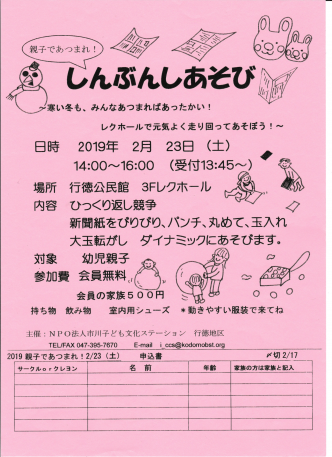 親子であつまれ！
しんぶんしあそび
～寒い冬も、みんなあつまればあったかい！
レクホールで元気よく走り回ってあそぼう！～
日時 2019年 2月 23日（土）
14:00～16:00 （受付13:45～）
場所 行徳公民館 3Fレクホール
内容 ひっくり返し競争
新聞紙をびりびり、パンチ、丸めて、玉入れ
大玉転がし ダイナミックにあそびます。
対象 幼児親子
参加費 会員無料
会員の家族500円
持ち物 飲み物 室内用シューズ ＊動きやすい服装で来てね
主催：NPO法人市川子ども文化ステーション 行徳地区
TEL/FAX 047-395-7670 E-mail i_ccs@kodomobst.org
2019 親子であつまれ！2/23（土） 申込書 〆切 2/17
サークルorクレヨン 名 前 年齢 家族の方は家族と記入